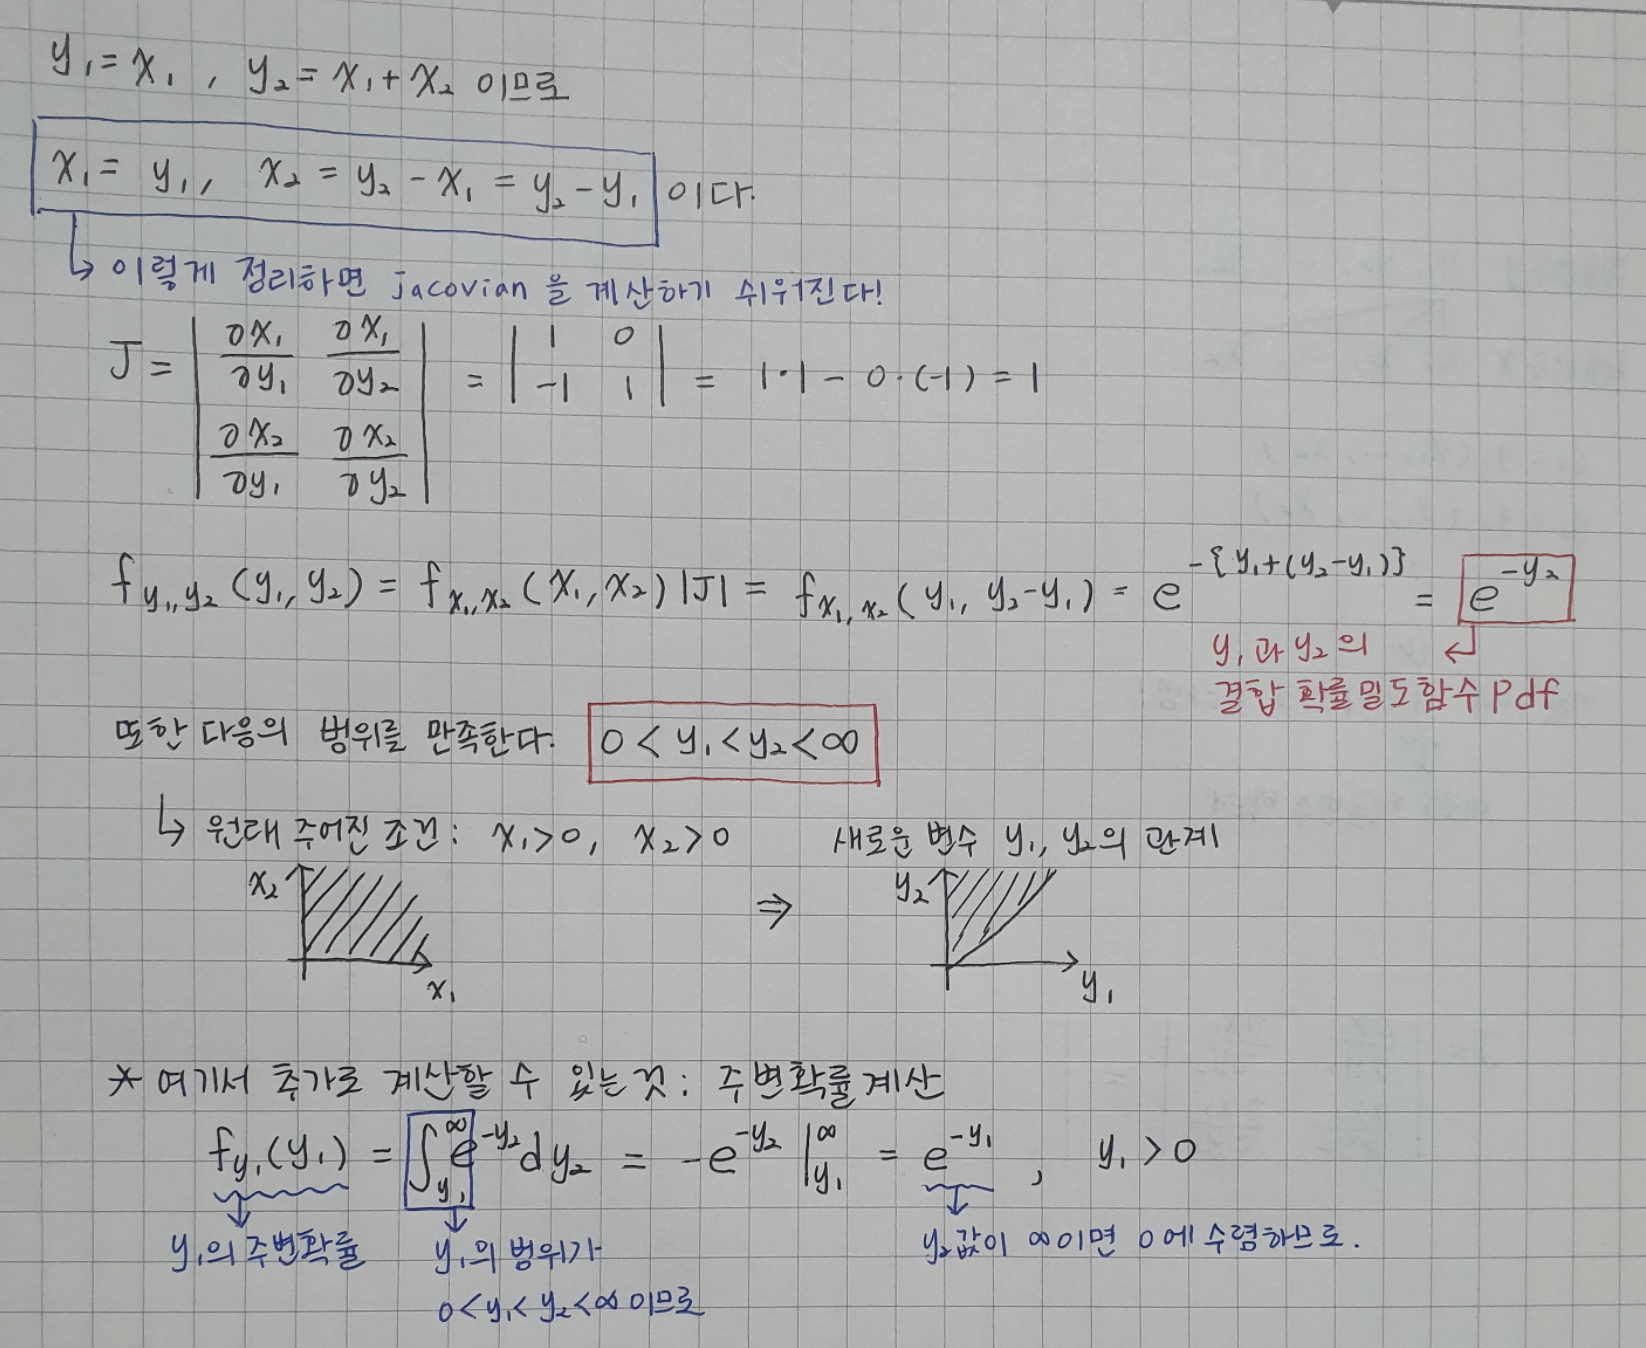 y₁ = x₁ , y₂ = x₁ + x₂ 이므로
x₁ = y₁, x₂ = y₂ - x₁ = y₂ - y₁ 이다.
↳ 이렇게 정리하면 jacovian을 계산하기 쉬워진다!
J = | ∂x₁/∂y₁ ∂x₁/∂y₂ | = | 1 0 | = 1·1 - 0·(-1) = 1
| ∂x₂/∂y₁ ∂x₂/∂y₂ | | -1 1 |
f_{y₁,y₂}(y₁, y₂) = f_{x₁,x₂}(x₁, x₂)|J| = f_{x₁,x₂}(y₁, y₂-y₁) = e^{-{y₁+(y₂-y₁)}} = e^{-y₂}
y₁과 y₂의 ↵
결합 확률밀도함수 pdf
또한 다음의 범위를 만족한다. 0 < y₁ < y₂ < ∞
↳ 원래 주어진 조건: x₁>0, x₂>0 새로운 변수 y₁, y₂의 관계
x₂ ⇒ y₂
x₁ y₁
* 여기서 추가로 계산할 수 있는것: 주변확률계산
f_{y₁}(y₁) = ∫_{y₁}^{∞} e^{-y₂} dy₂ = -e^{-y₂} |_{y₁}^{∞} = e^{-y₁} , y₁ > 0
y₁의 주변확률 y₁의 범위가 y₂값이 ∞이면 0에 수렴하므로.
0<y₁<y₂<∞ 이므로